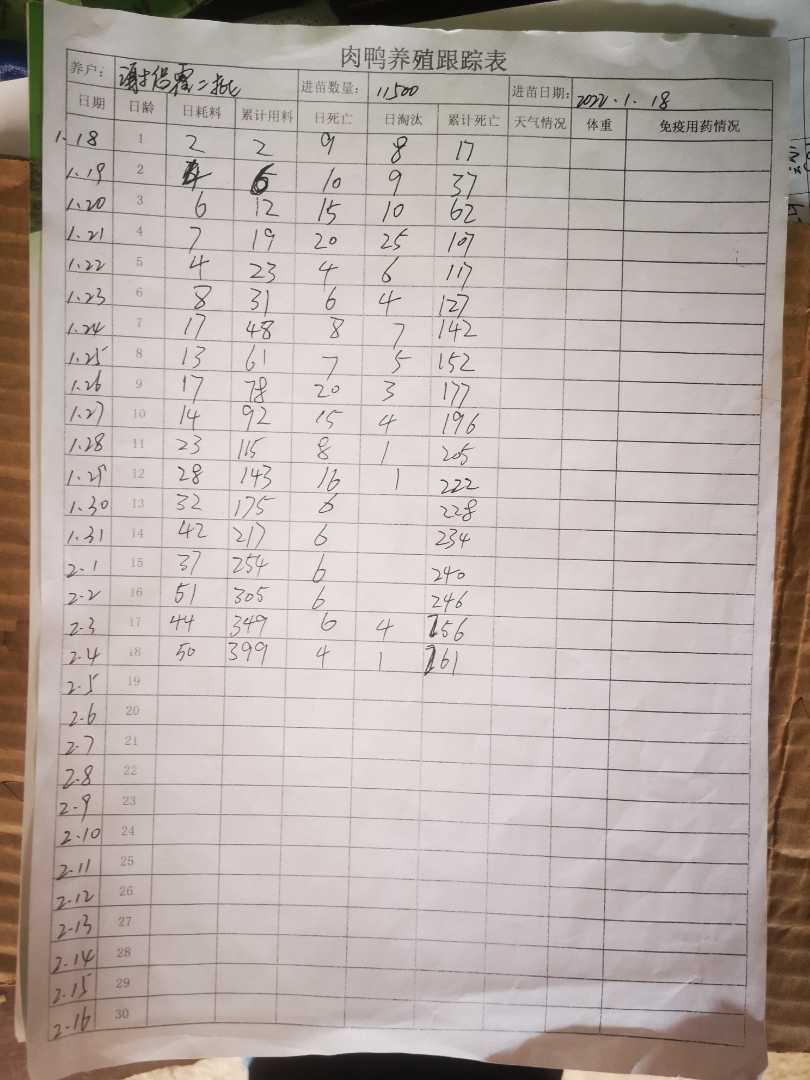 肉鸭养殖跟踪表
养户： 谢 霞二批 进苗数量： 11500 进苗日期： 2022.1.18
日期 日龄 日耗料 累计用料 日死亡 日淘汰 累计死亡 天气情况 体重 免疫用药情况
1.18 1 2 2 9 8 17
1.19 2 4 6 10 9 37
1.20 3 6 12 15 10 62
1.21 4 7 19 20 25 107
1.22 5 4 23 4 6 117
1.23 6 8 31 6 4 127
1.24 7 17 48 8 7 142
1.25 8 13 61 7 5 152
1.26 9 17 78 20 3 177
1.27 10 14 92 15 4 196
1.28 11 23 115 8 1 205
1.29 12 28 143 16 1 222
1.30 13 32 175 6 228
1.31 14 42 217 6 234
2.1 15 37 254 6 240
2.2 16 51 305 6 246
2.3 17 44 349 6 4 256
2.4 18 50 399 4 1 261
2.5 19
2.6 20
2.7 21
2.8 22
2.9 23
2.10 24
2.11 25
2.12 26
2.13 27
2.14 28
2.15 29
2.16 30